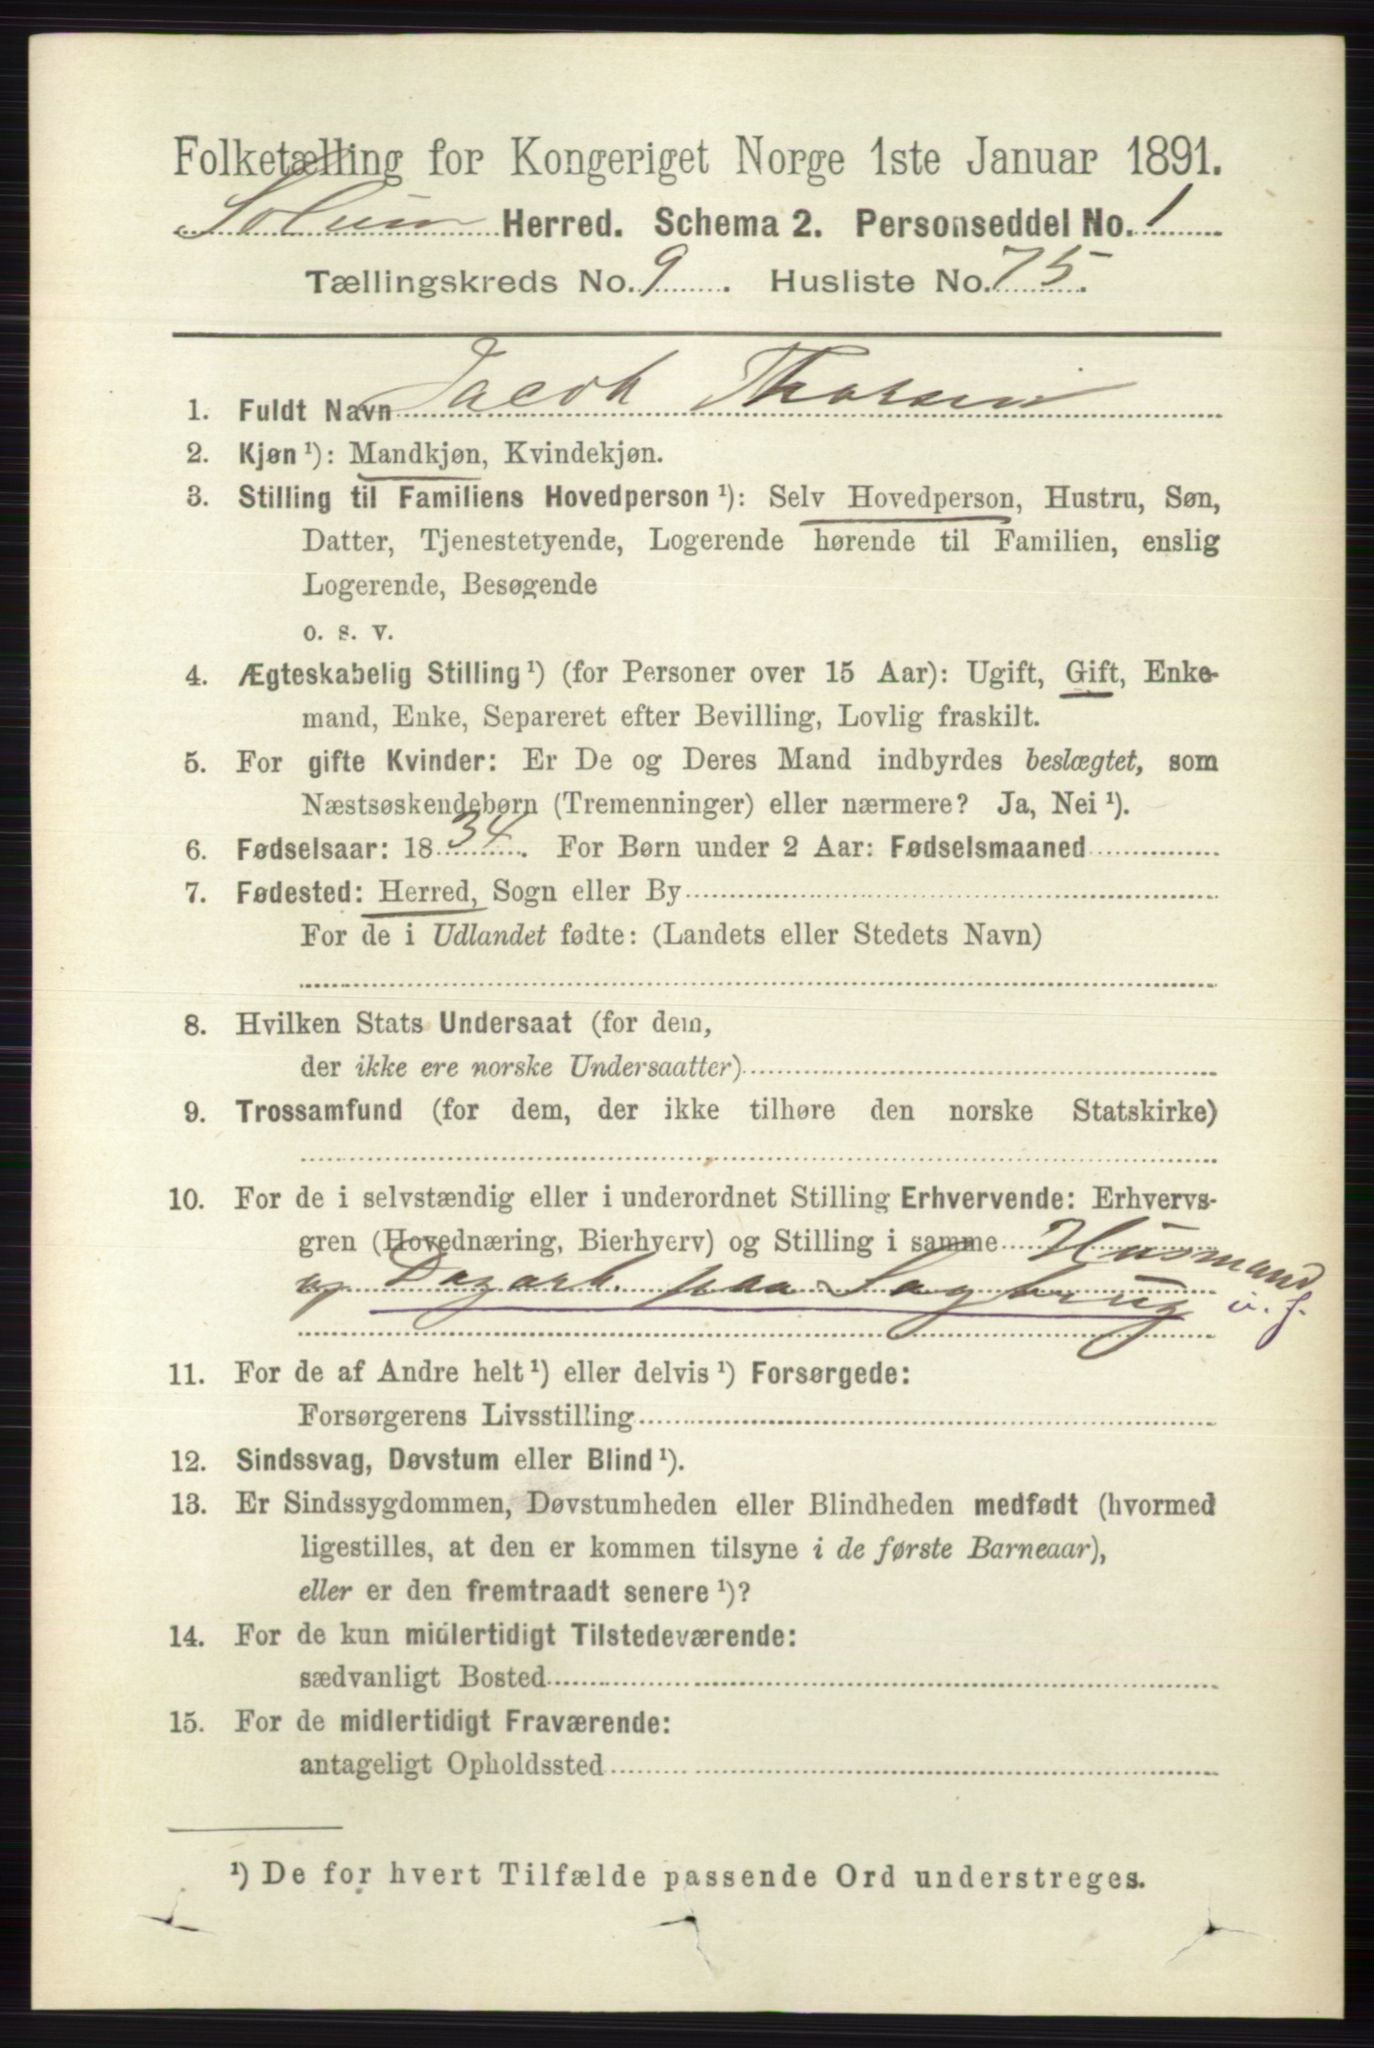 Folketælling for Kongeriget Norge 1ste Januar 1891.
Solum Herred. Schema 2. Personseddel No. 1
Tællingskreds No. 9. Husliste No. 75.
1. Fuldt Navn Jacob Thorsen
2. Kjøn ¹): Mandkjøn, Kvindekjøn.
3. Stilling til Familiens Hovedperson ¹): Selv Hovedperson, Hustru, Søn,
Datter, Tjenestetyende, Logerende hørende til Familien, enslig
Logerende, Besøgende
o. s. v.
4. Ægteskabelig Stilling ¹) (for Personer over 15 Aar): Ugift, Gift, Enke-
mand, Enke, Separeret efter Bevilling, Lovlig fraskilt.
5. For gifte Kvinder: Er De og Deres Mand indbyrdes beslægtet, som
Næstsøskendebørn (Tremenninger) eller nærmere? Ja, Nei ¹).
6. Fødselsaar: 1834. For Børn under 2 Aar: Fødselsmaaned
7. Fødested: Herred, Sogn eller By
For de i Udlandet fødte: (Landets eller Stedets Navn)
8. Hvilken Stats Undersaat (for dem,
der ikke ere norske Undersaatter)
9. Trossamfund (for dem, der ikke tilhøre den norske Statskirke)
10. For de i selvstændig eller i underordnet Stilling Erhvervende: Erhvervs-
gren (Hovednæring, Bierhverv) og Stilling i samme Husmand
og Dagarb. paa Sagbrug u. J.
11. For de af Andre helt ¹) eller delvis ¹) Forsørgede:
Forsørgerens Livsstilling
12. Sindssvag, Døvstum eller Blind ¹).
13. Er Sindssygdommen, Døvstumheden eller Blindheden medfødt (hvormed
ligestilles, at den er kommen tilsyne i de første Barneaar),
eller er den fremtraadt senere ¹)?
14. For de kun midlertidigt Tilstedeværende:
sædvanligt Bosted
15. For de midlertidigt Fraværende:
antageligt Opholdssted
¹) De for hvert Tilfælde passende Ord understreges.